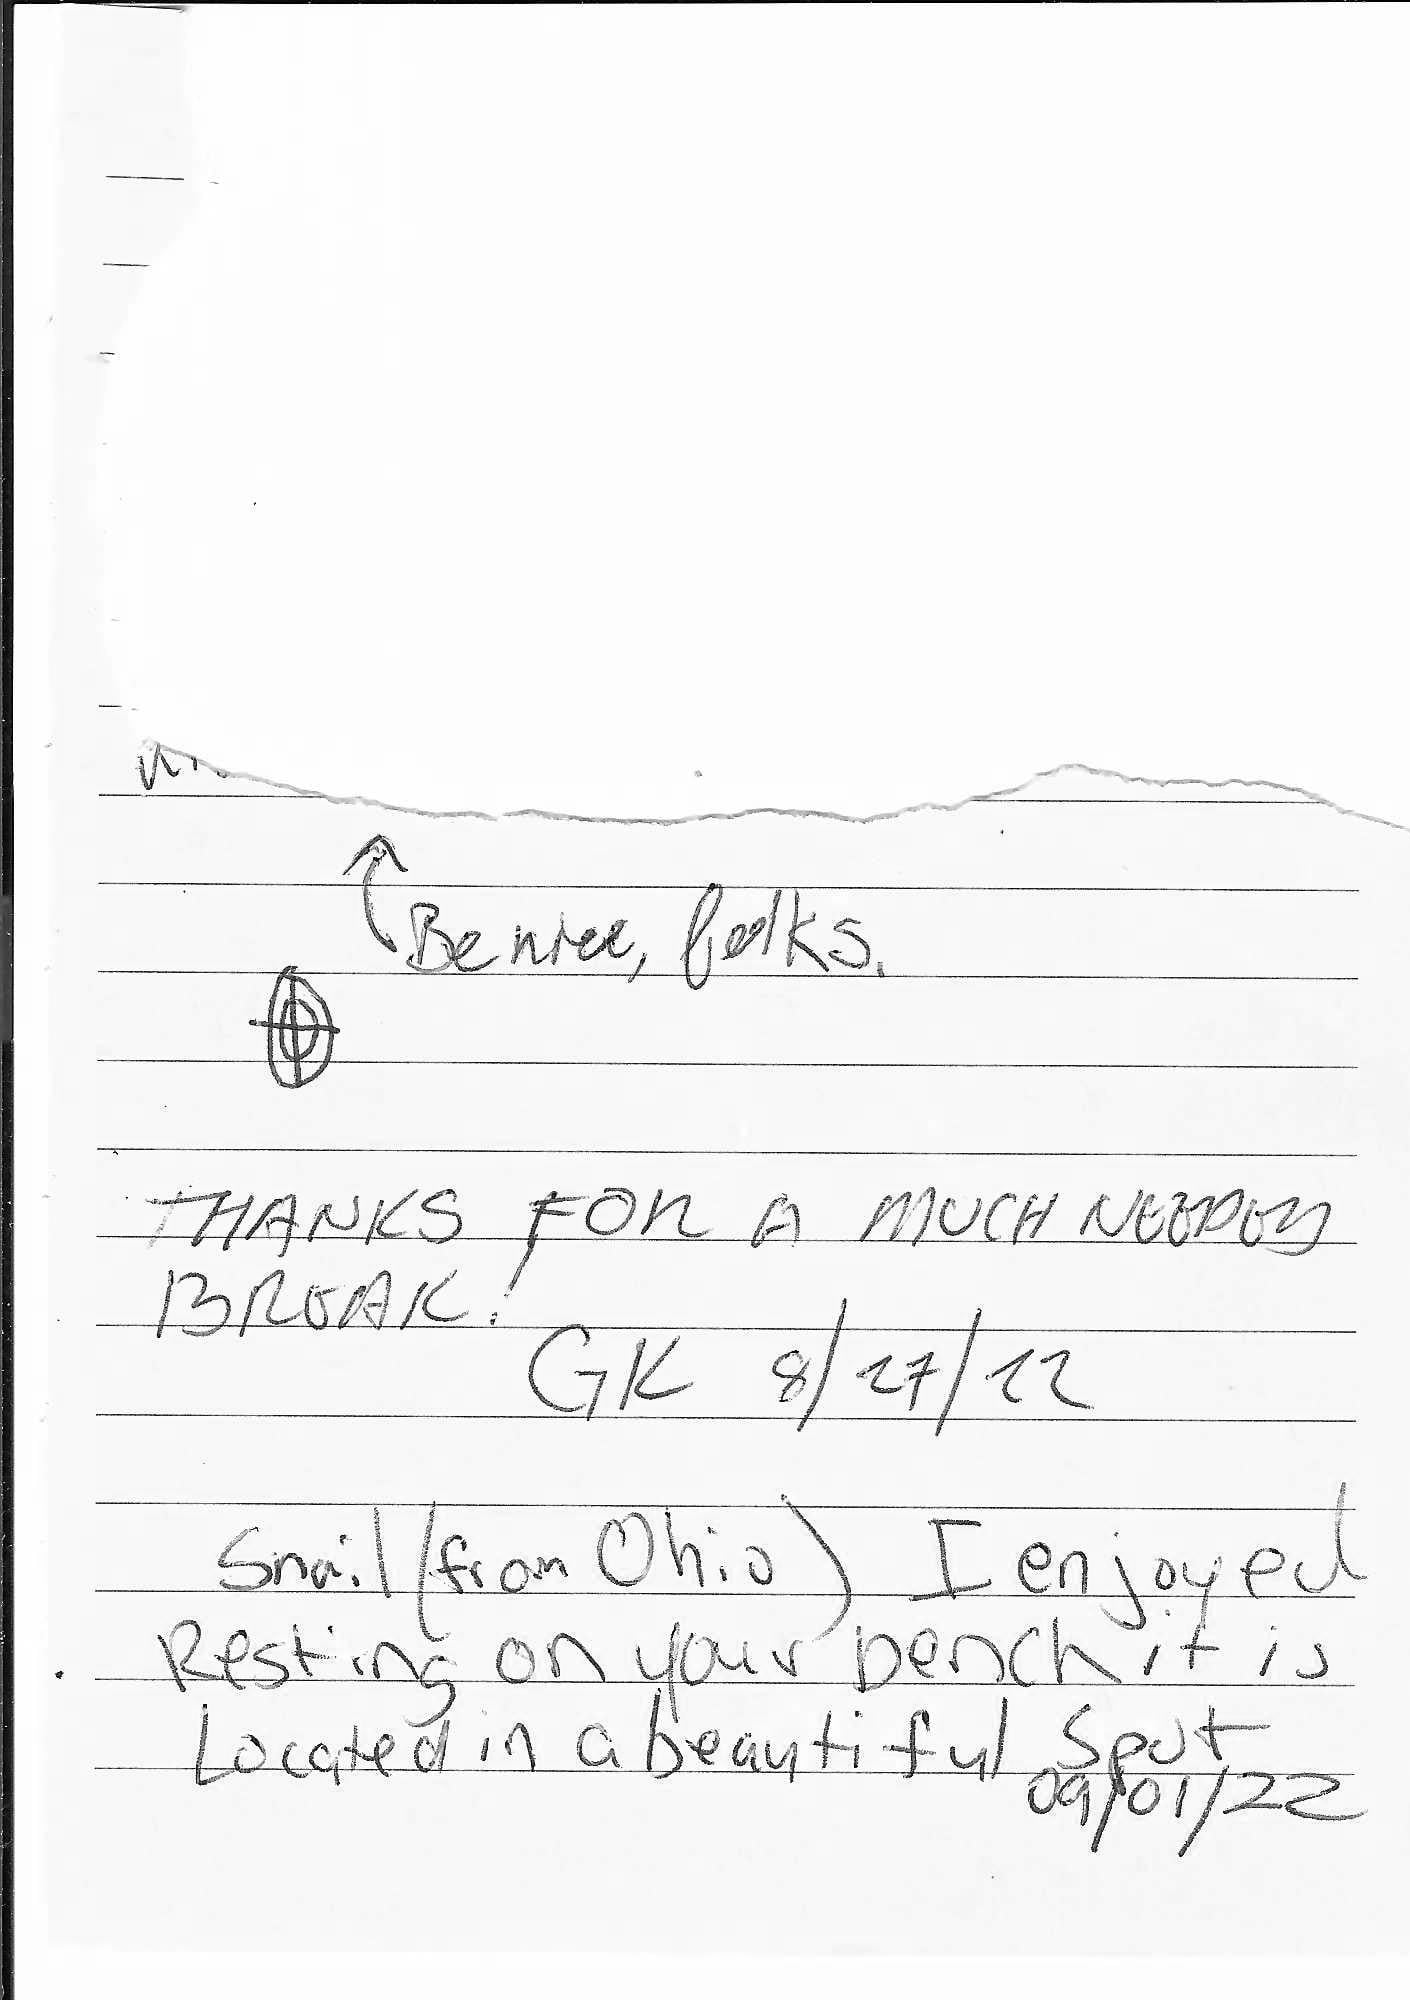 Be nice, folks.
THANKS FOR A MUCH NEEDED
BREAK!
GK 8/27/22
Snail (from Ohio) I enjoyed
Resting on your bench it is
Located in a beautiful Spot
09/01/22